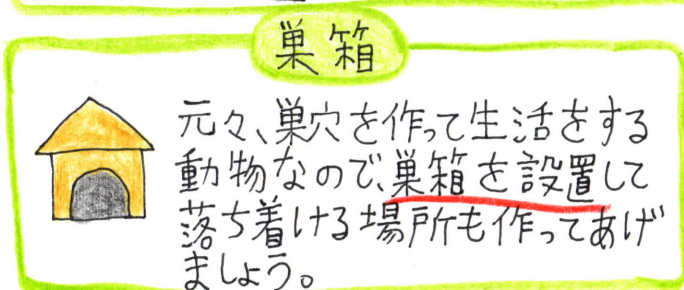 巣箱
元々、巣穴を作って生活をする
動物なので、巣箱を設置して
落ち着ける場所も作ってあげ
ましょう。